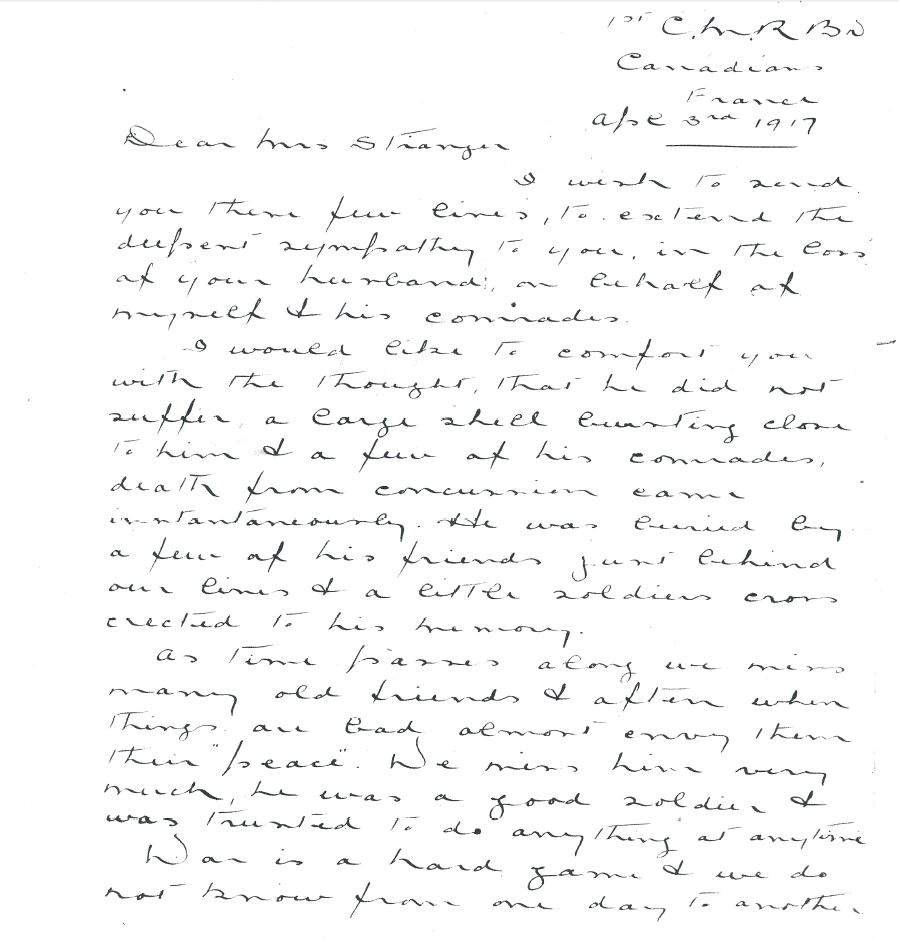 1st C.M.R Bn
Canadians
France
Apl 3rd 1917
Dear Mrs Stranger
I wish to send
you these few lines, to extend the
deepest sympathy to you, in the loss
of your husband, on behalf of
myself & his comrades.
I would like to comfort you
with the thought, that he did not
suffer, a large shell bursting close
to him & a few of his comrades,
death from concussion came
instantaneously. He was buried by
a few of his friends just behind
our lines & a little soldiers cross
erected to his memory.
As time passes along we miss
many old friends & often when
things are bad almost envy them
their "peace". We miss him very
much, he was a good soldier &
was trusted to do anything at anytime
War is a hard game & we do
not know from one day to another